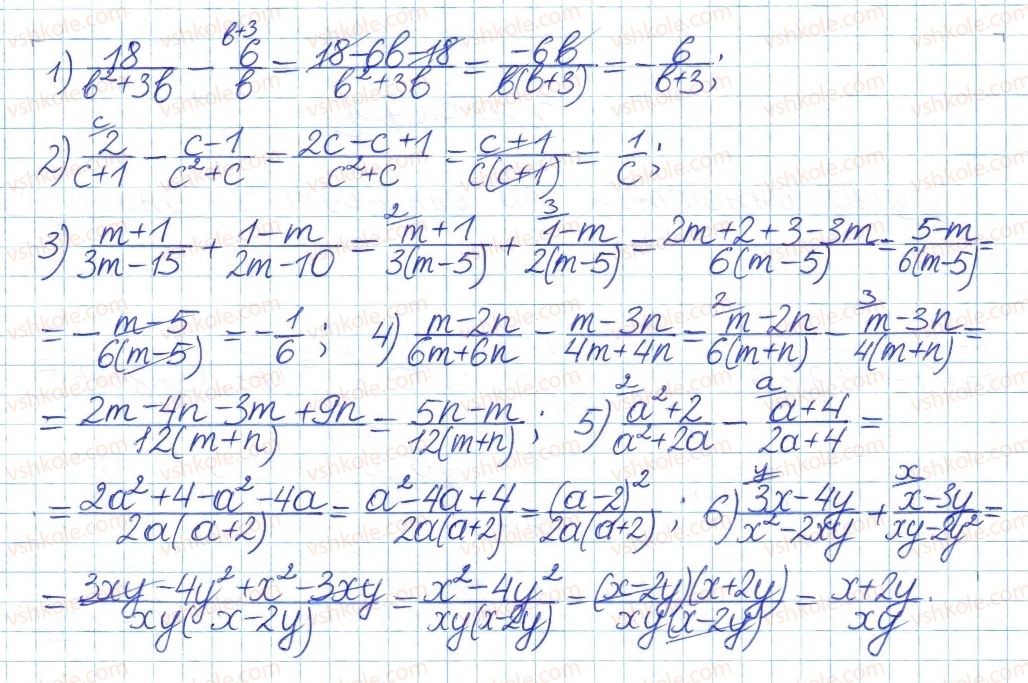 1) 18/(в²+3в) − 6/в ^(в+3) = (18−6в−18)/(в²+3в) = −6в/(в(в+3)) = −6/(в+3);
2) 2/(c+1) ^c − (c−1)/(c²+c) = (2c−c+1)/(c²+c) = (c+1)/(c(c+1)) = 1/c;
3) (m+1)/(3m−15) + (1−m)/(2m−10) = ²(m+1)/(3(m−5)) + ³(1−m)/(2(m−5)) = (2m+2+3−3m)/(6(m−5)) = (5−m)/(6(m−5)) =
= −(m−5)/(6(m−5)) = −1/6; 4) (m−2n)/(6m+6n) − (m−3n)/(4m+4n) = ²(m−2n)/(6(m+n)) − ³(m−3n)/(4(m+n)) =
= (2m−4n−3m+9n)/(12(m+n)) = (5n−m)/(12(m+n)); 5) ²(a²+2)/(a²+2a) − ^a(a+4)/(2a+4) =
= (2a²+4−a²−4a)/(2a(a+2)) = (a²−4a+4)/(2a(a+2)) = (a−2)²/(2a(a+2)); 6) ^y(3x−4y)/(x²−2xy) + ^x(x−3y)/(xy−2y²) =
= (3xy−4y²+x²−3xy)/(xy(x−2y)) = (x²−4y²)/(xy(x−2y)) = (x−2y)(x+2y)/(xy(x−2y)) = (x+2y)/(xy).
vshkole.com